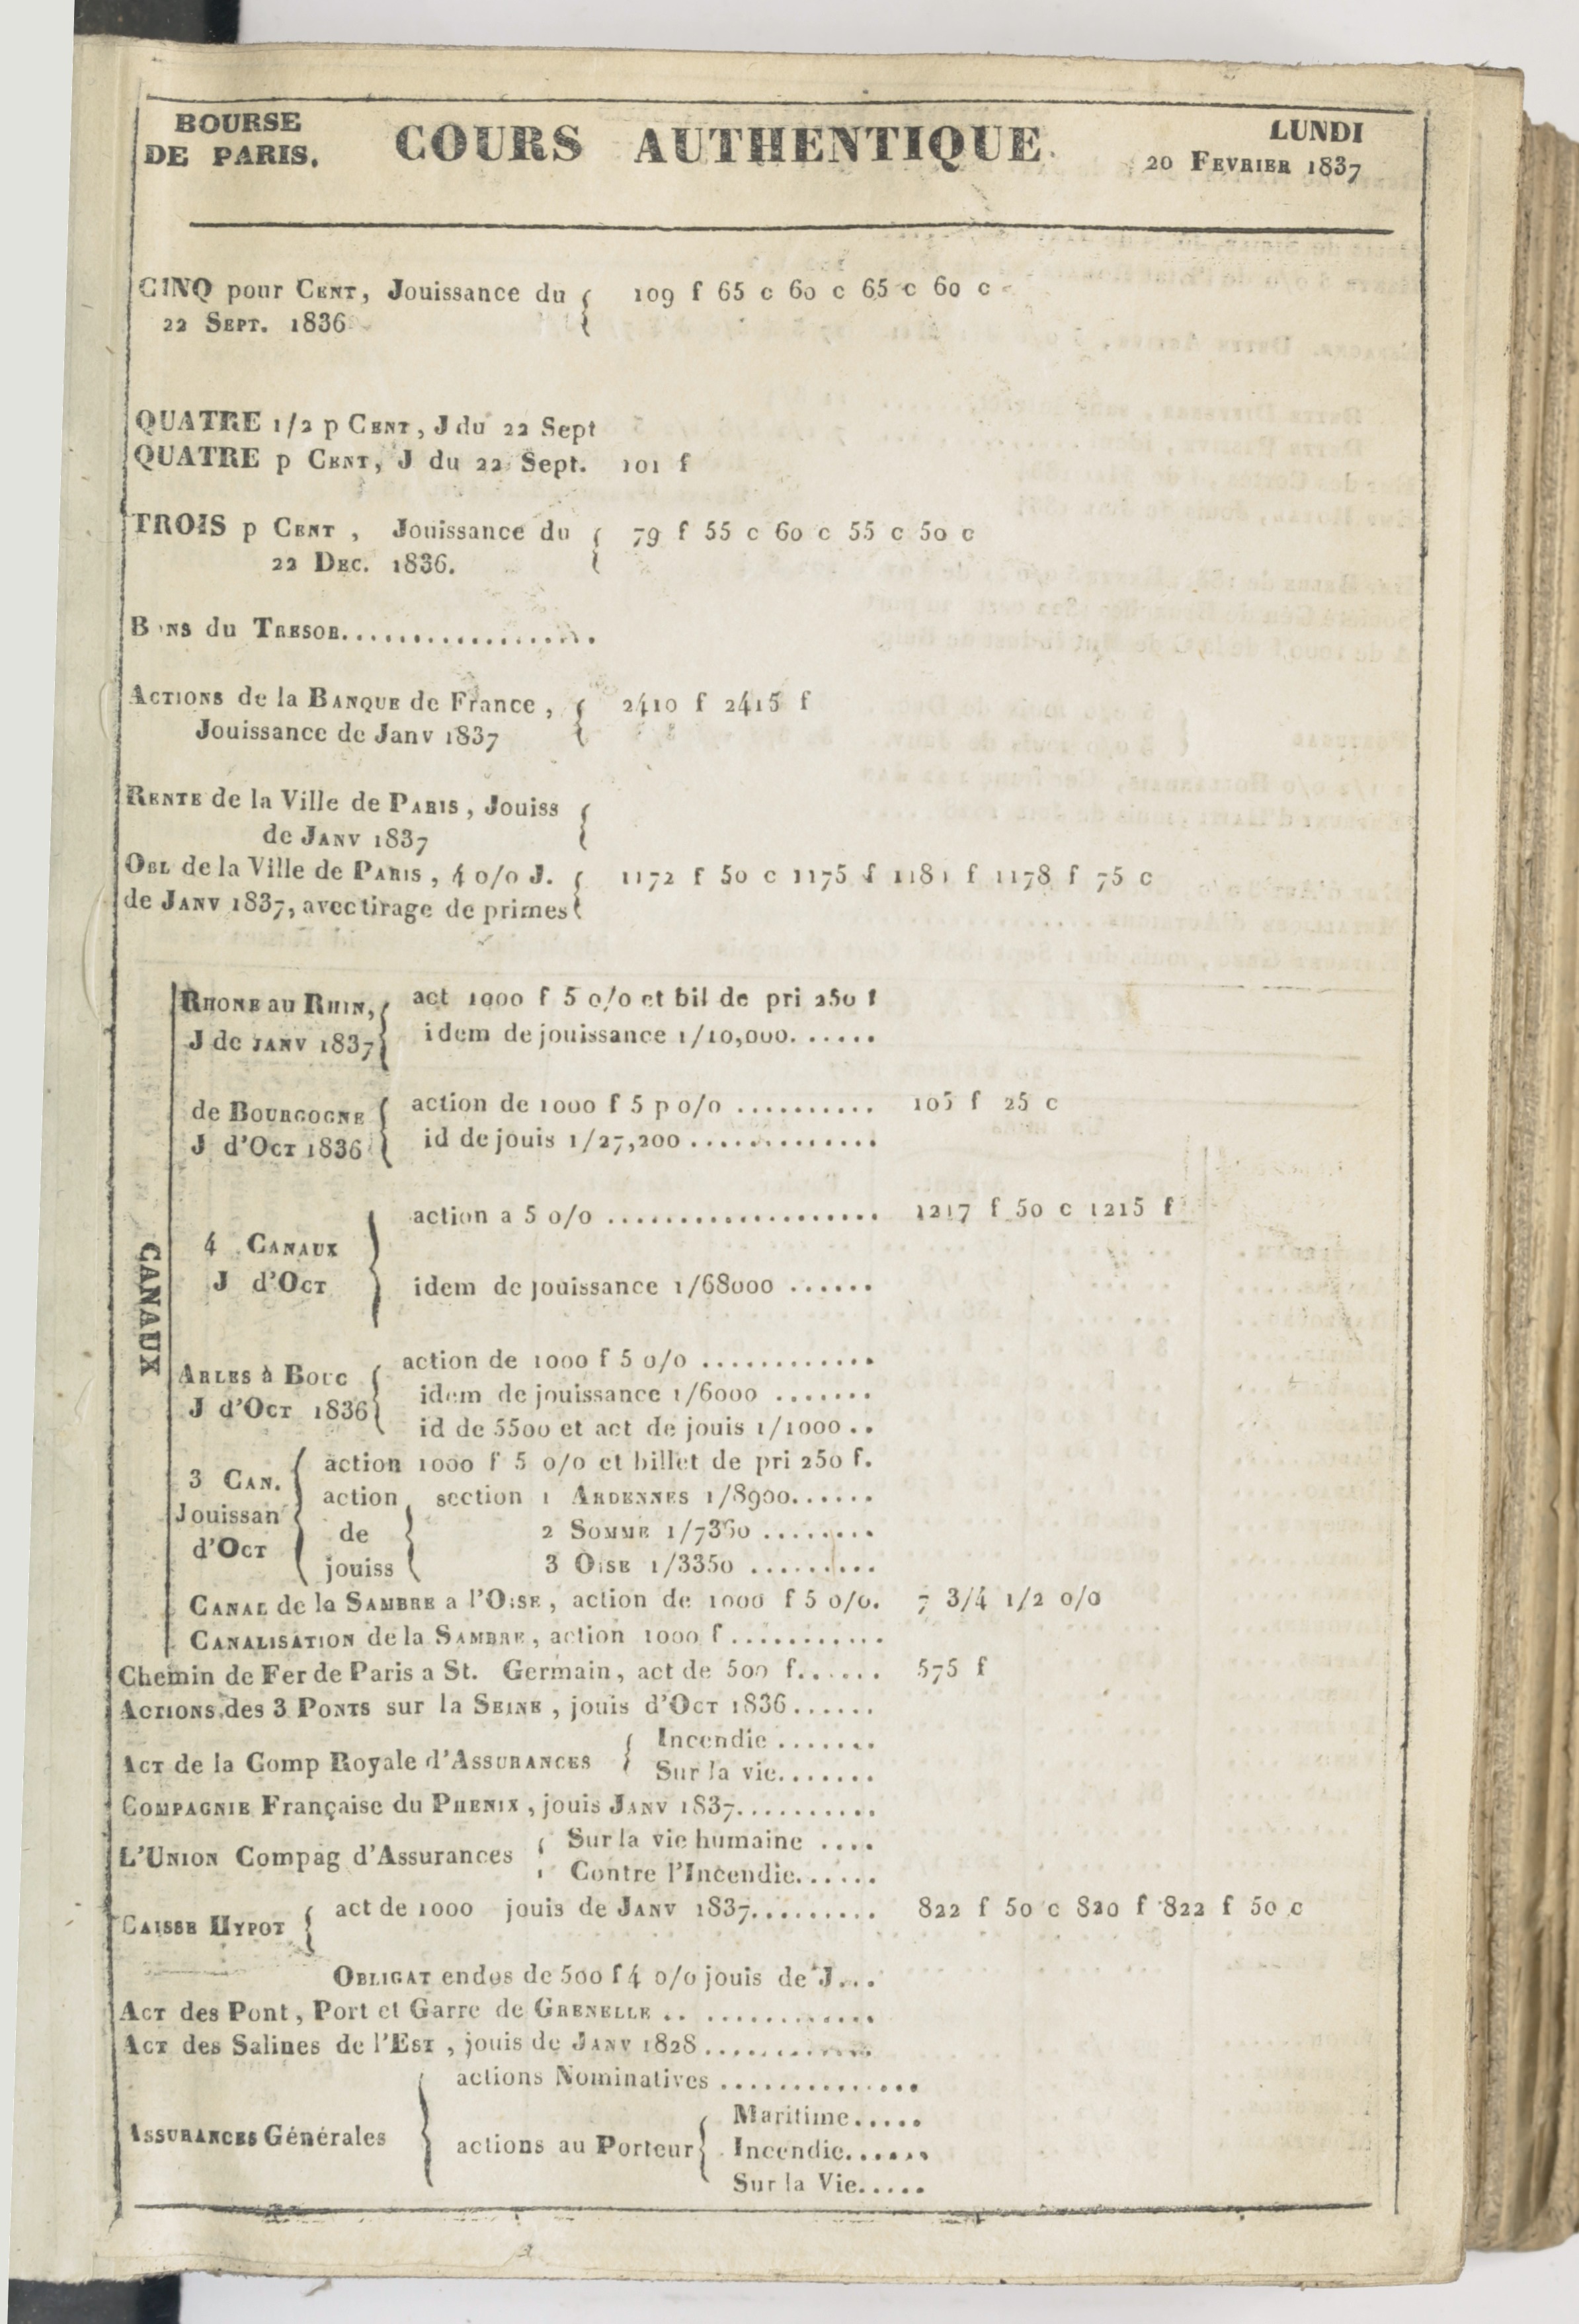 BOURSE
DE PARIS.
COURS AUTHENTIQUE.
LUNDI
20 FEVRIER 1837
CINQ pour CENT, Jouissance du { 109 f 65 c 60 c 65 c 60 c
22 SEPT. 1836
QUATRE 1/2 p CENT, J du 22 Sept
QUATRE p CENT, J du 22 Sept. 101 f
TROIS p CENT, Jouissance du { 79 f 55 c 60 c 55 c 50 c
22 DEC. 1836.
B NS du TRESOR..................
ACTIONS de la BANQUE de France, { 2410 f 2415 f
Jouissance de Janv 1837
RENTE de la Ville de PARIS, Jouiss {
de JANV 1837
OBL de la Ville de PARIS, 4 o/o J. { 1172 f 50 c 1175 f 1181 f 1178 f 75 c
de JANV 1837, avec tirage de primes
CANAUX
RHONE au RHIN, { act 1000 f 5 o/o et bil de pri 250 f
J de JANV 1837 idem de jouissance 1/10,000......
de BOURGOGNE { action de 1000 f 5 p o/o .......... 105 f 25 c
J d'OCT 1836 id de jouis 1/27,200 .............
action a 5 o/o ................... 1217 f 50 c 1215 f
4 CANAUX }
J d'OCT idem de jouissance 1/68000 ......
action de 1000 f 5 o/o ............
ARLES à BOUC { idem de jouissance 1/6000 .......
J d'OCT 1836 id de 5500 et act de jouis 1/1000 ..
action 1000 f 5 o/o et billet de pri 250 f.
3 CAN. { action section 1 ARDENNES 1/8900......
Jouissan de { 2 SOMME 1/7360 ........
d'OCT jouiss 3 OISE 1/3350 .........
CANAL de la SAMBRE a l'OISE, action de 1000 f 5 o/o. 7 3/4 1/2 o/o
CANALISATION de la SAMBRE, action 1000 f...........
Chemin de Fer de Paris a St. Germain, act de 500 f...... 575 f
ACTIONS des 3 PONTS sur la SEINE, jouis d'OCT 1836......
ACT de la Comp Royale d'ASSURANCES { Incendie .......
Sur la vie.......
COMPAGNIE Française du PHENIX, jouis JANV 1837..........
L'UNION Compag d'Assurances { Sur la vie humaine ....
Contre l'Incendie......
CAISSE HYPOT { act de 1000 jouis de JANV 1837......... 822 f 50 c 820 f 822 f 50 c
OBLIGAT endos de 500 f 4 o/o jouis de J...
ACT des Pont, Port et Garre de GRENELLE .. ............
ACT des Salines de l'EST, jouis de JANV 1828............
ASSURANCES Générales { actions Nominatives ..............
actions au Porteur { Maritime.....
Incendie......
Sur la Vie.....